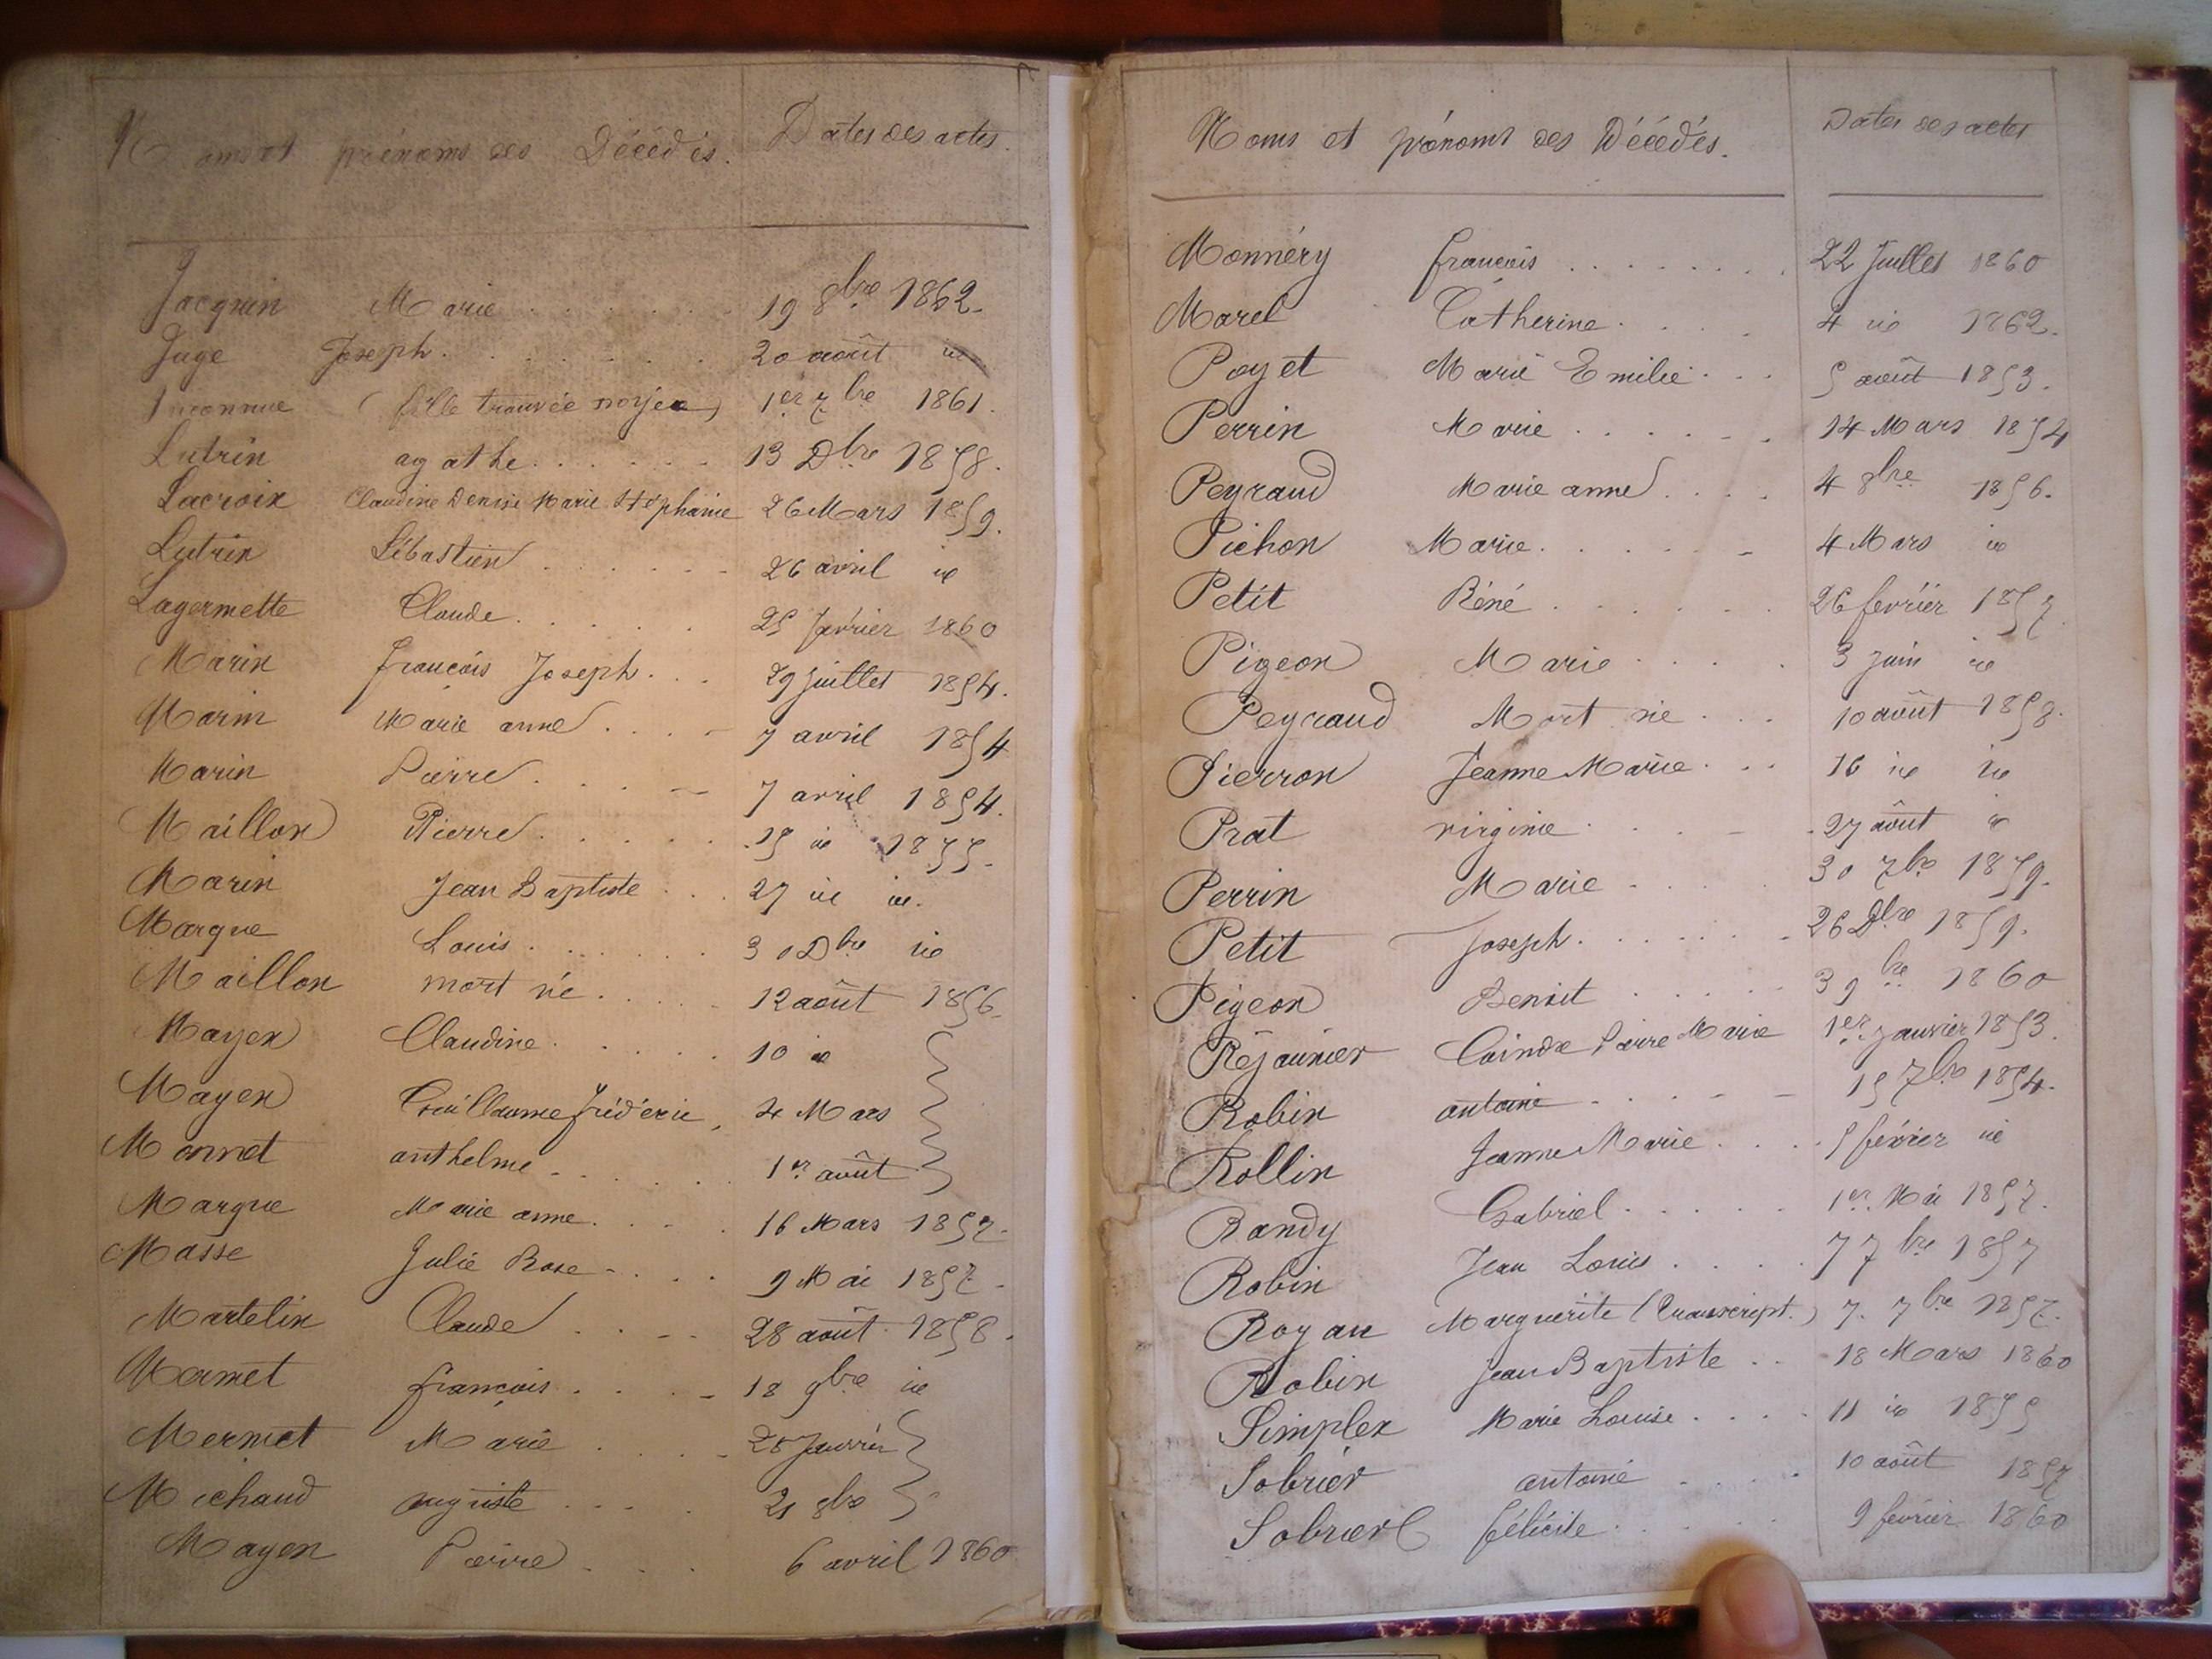 Noms et prénoms des Décédés. Dates des actes.
Jacquin Marie 19 8bre 1862.
Juge Joseph 20 août id
Inconnue (fille trouvée noyée) 1er 7bre 1861.
Lutrin agathe 13 Dbre 1858.
Lacroix Claudine Denise Marie Stéphanie 26 Mars 1859.
Lutrin Sébastien 26 avril id
Lagermette Claude 25 février 1860
Marin françois Joseph 29 juillet 1854.
Marin Marie anne 7 avril 1854
Marin Pierre 7 avril 1854.
Maillon Pierre 15 id 1855.
Marin Jean Baptiste 27 id id.
Margue Louis 30 Dbre id
Maillon mort né 12 août 1856.
Mayen Claudine 10 id
Mayen Guillaume frédéric, 4 Mars
Monnet anthelme 1er août
Margue Marie anne 16 Mars 1857.
Masse Julie Rose 9 Mai 1857.
Martelin Claude 28 août 1858.
Mermet françois 18 9bre id
Mermet Marie 28 Janvier
Michaud auguste 21 8bre
Mayen Pierre 6 avril 1860
Noms et prénoms des Décédés. Dates des actes
Monnéry françois 22 Juillet 1860
Marel Catherine 4 id 1862.
Poyet Marie Emilie 5 août 1853.
Perrin Marie 14 Mars 1854
Peyraud Marie anne 4 8bre 1856.
Pichon Marie 4 Mars id
Petit Réné 26 fevrier 1857
Pigeon Marie 3 juin id
Peyraud Mort né 10 août 1858.
Pierron Jeanne Marie 16 id id
Prat virginie 27 août id
Perrin Marie 30 7bre 1859.
Petit Joseph 26 Dbre 1859.
Pigeon Benoit 3 9bre 1860
Réjaunier Coindre Pierre Marie 1er janvier 1853.
Robin antoine 15 7bre 1854.
Rollin Jeanne Marie 5 février id
Randy Gabriel 1er Mai 1857.
Robin Jean Louis 7 7bre 1857
Royan Marguerite (Transcript.) 7. 7bre 1857.
Robin Jean Baptiste 18 Mars 1860
Simplex Marie Louise 11 id 1855
Sobrier antoine 10 août 1857
Sobrier félicité 9 février 1860